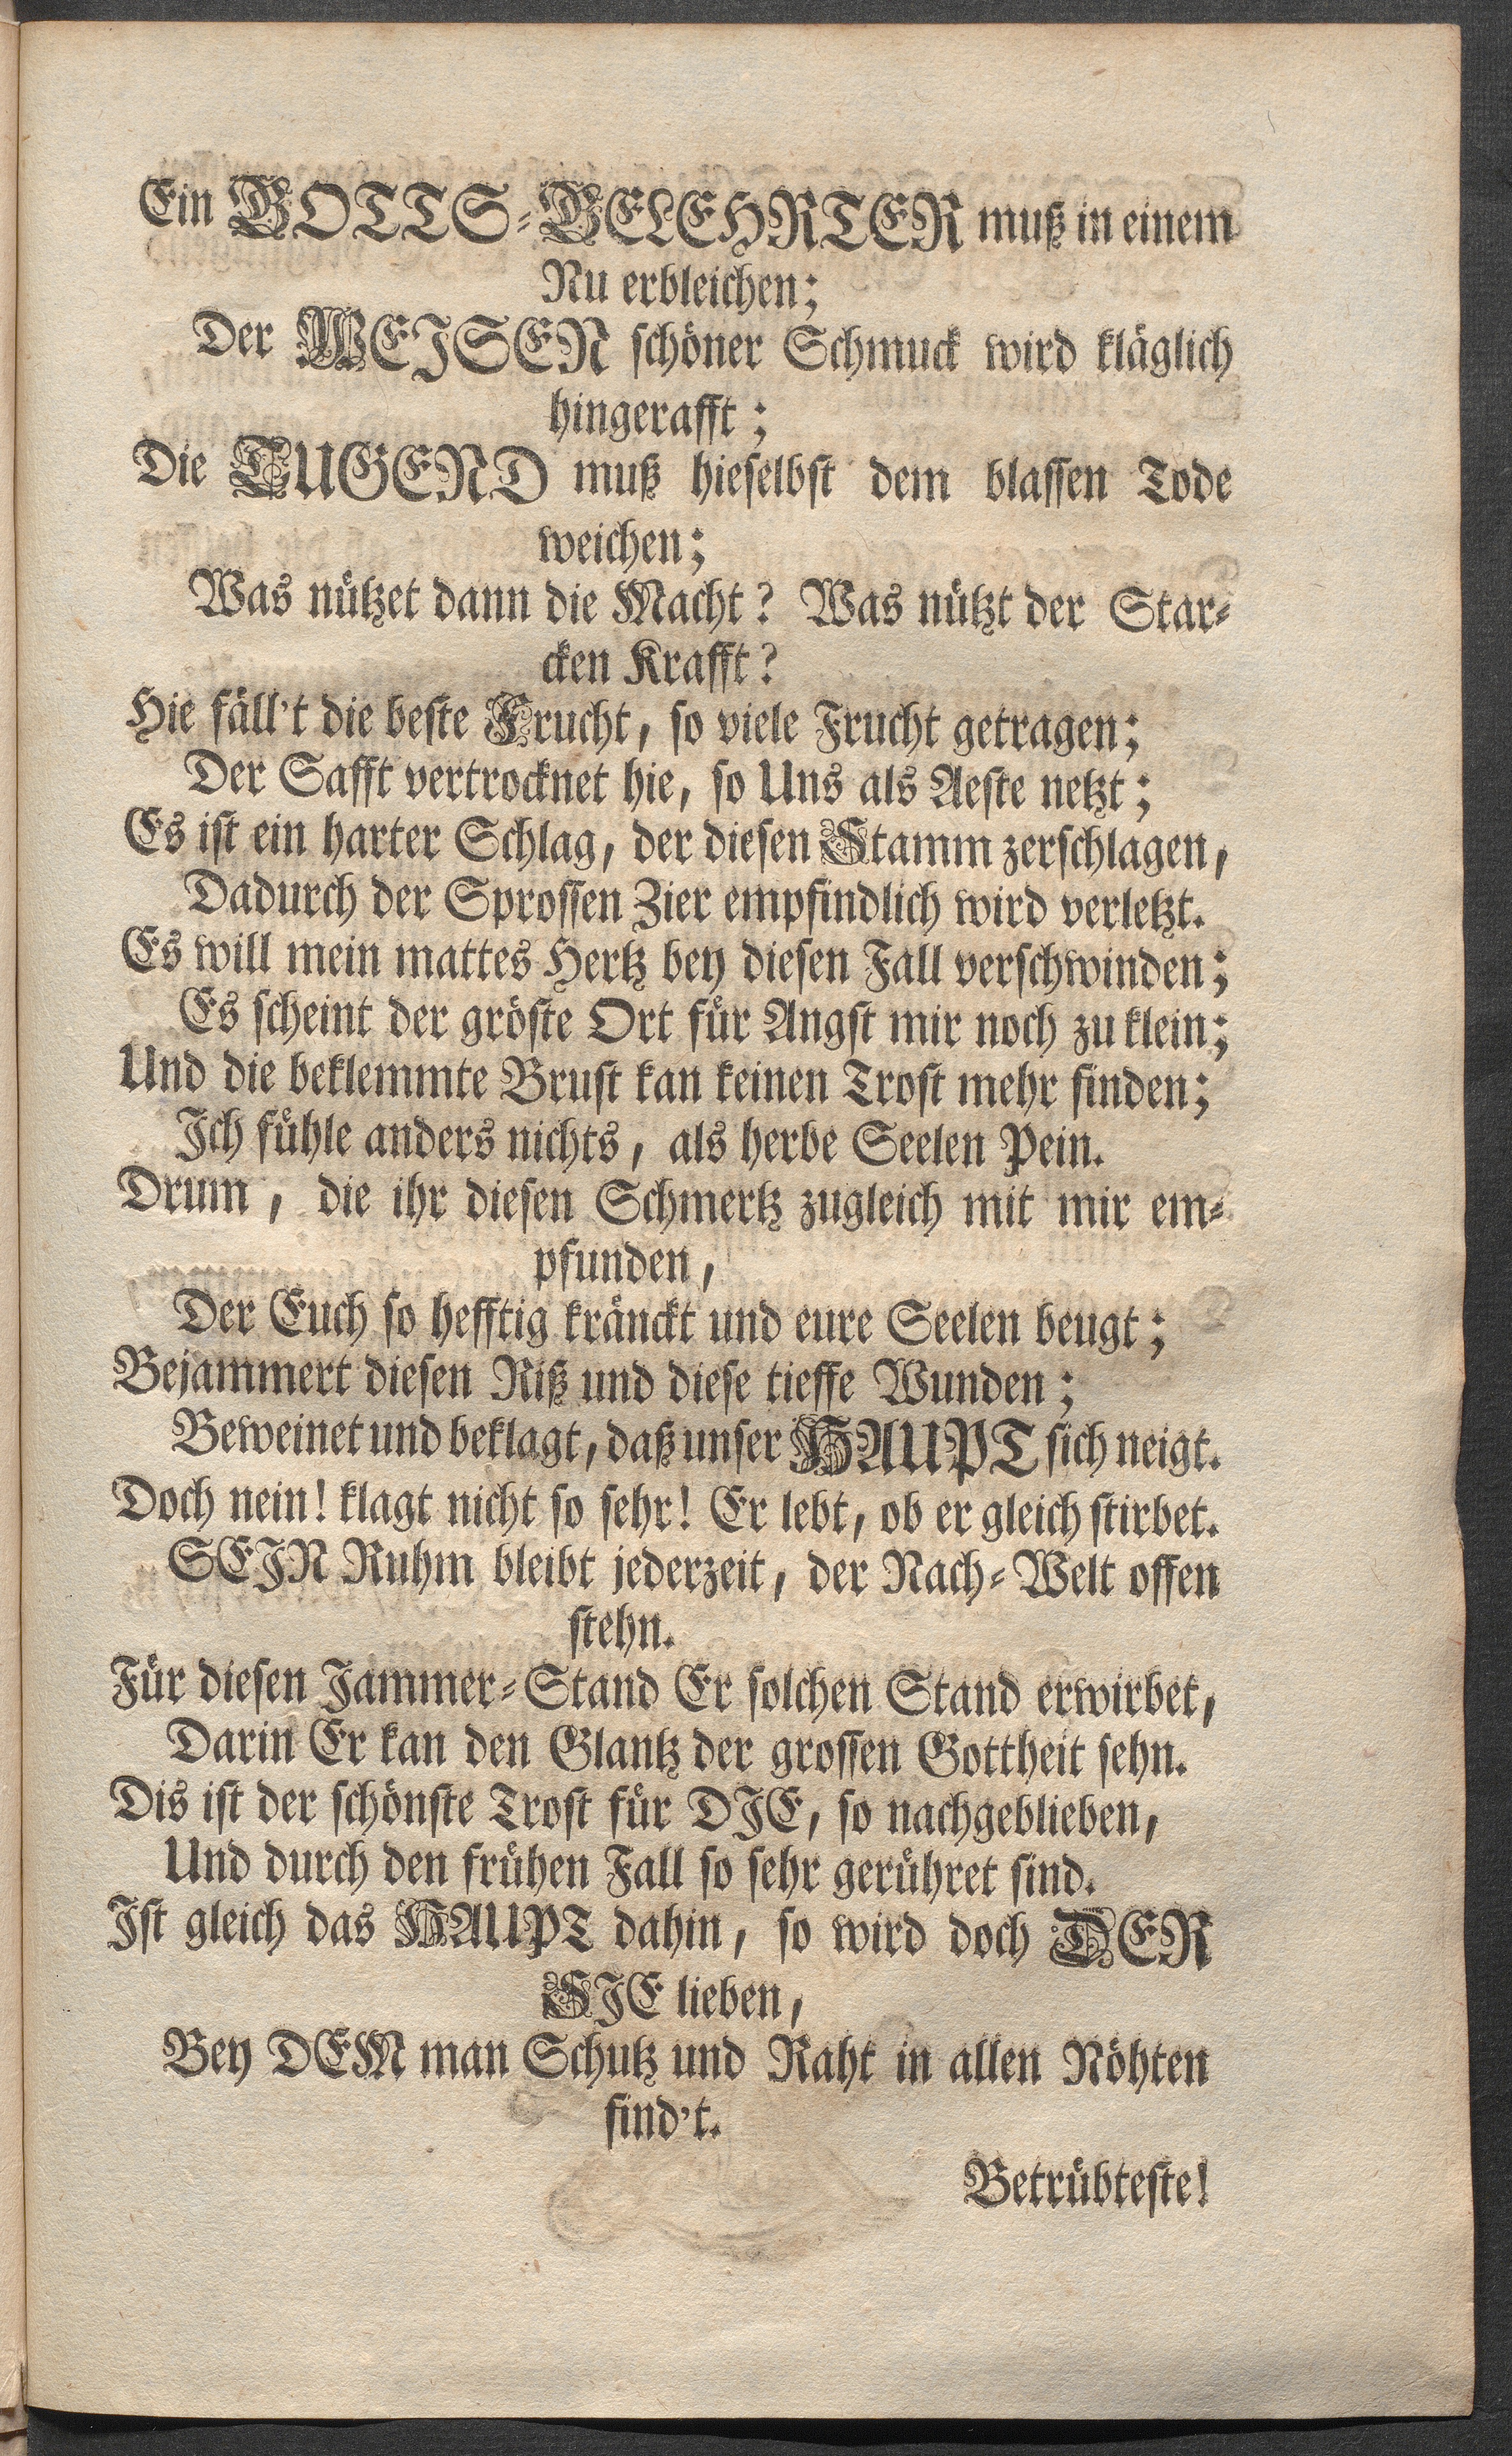 Ein GOTTS-GELEHRTER muß in einem
Nu erbleichen;
Der WEJSEN schöner Schmuck wird kläglich
hingerafft;
Die TUGEND muß hieselbst dem blassen Tode
weichen;
Was nützet dann die Macht? Was nützt der Star-
cken Krafft?
Hie fäll't die beste Frucht, so viele Frucht getragen;
Der Safft vertrocknet hie, so Uns als Aeste netzt;
Es ist ein harter Schlag, der diesen Stamm zerschlagen,
Dadurch der Sprossen Zier empfindlich wird verletzt.
Es will mein mattes Hertz bey diesen Fall verschwinden;
Es scheint der gröste Ort für Angst mir noch zu klein;
Und die beklemmte Brust kan keinen Trost mehr finden;
Jch fühle anders nichts, als herbe Seelen Pein.
Drum, die ihr diesen Schmertz zugleich mit mir em-
pfunden,
Der Euch so hefftig kränckt und eure Seelen beugt;
Bejammert diesen Riß und diese tieffe Wunden;
Beweinet und beklagt, daß unser HAUPT sich neigt.
Doch nein! klagt nicht so sehr! Er lebt, ob er gleich stirbet.
SEJN Ruhm bleibt jederzeit, der Nach-Welt offen
stehn.
Für diesen Jammer-Stand Er solchen Stand erwirbet,
Darin Er kan den Glantz der grossen Gottheit sehn.
Dis ist der schönste Trost für DJE, so nachgeblieben,
Und durch den frühen Fall so sehr gerühret sind.
Jst gleich das HAUPT dahin, so wird doch DER
SJE lieben,
Bey DEM man Schutz und Raht in allen Nöhten
find't.
Betrübteste!